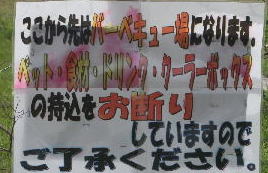 ここから先はバーベキュー場になります。
ペット・食材・ドリンク・クーラーボックス
の持込をお断り
していますので
ご了承ください。